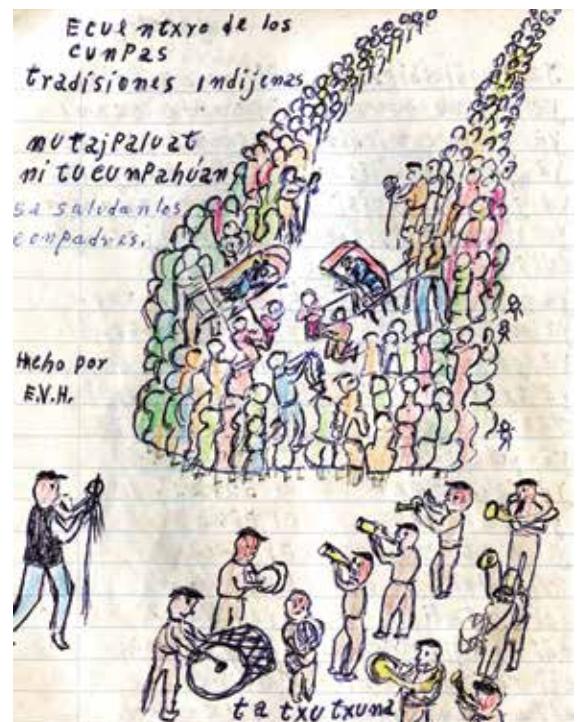 Ecuentxro de los
cunpas
tradisiones indijenas
mutajpaluat
ni tucunpahúan
se saludan los
conpadres.
Hecho por
E.V.H.
ta txutxuna